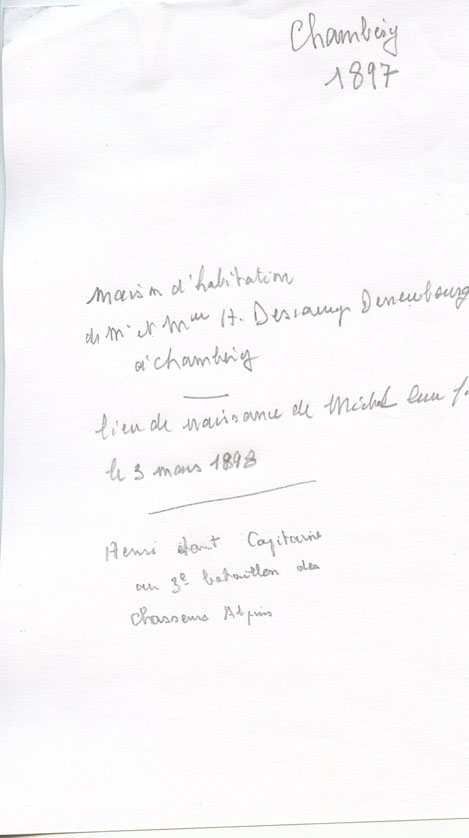 Chambéry
1897
maison d'habitation
de Mr et Mme H. Descamp Denenbourg
à Chambéry
lieu de naissance de Michel leur
le 3 mars 1898
Henri étant Capitaine
au 3e bataillon des
Chasseurs Alpins